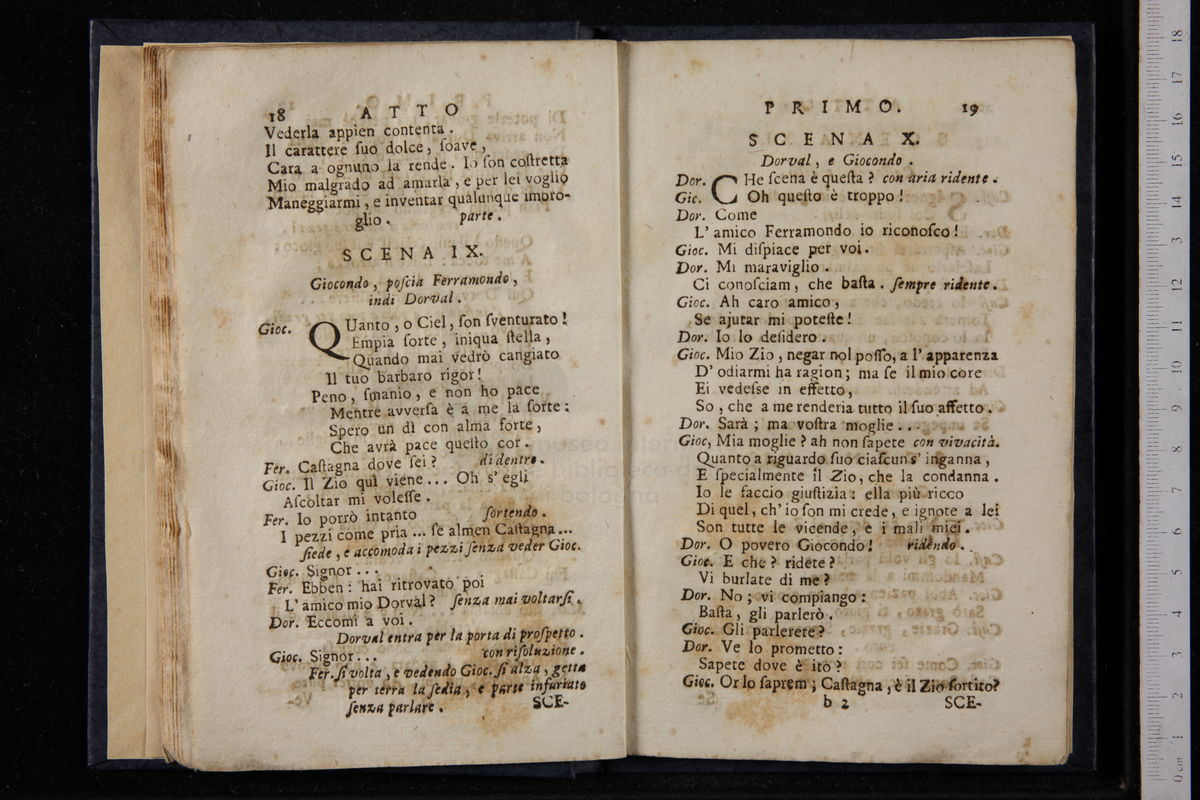 18 ATTO
Vederla appien contenta.
Il carattere ſuo dolce, ſoave,
Cara a ognuno la rende. Io ſon coſtretta
Mio malgrado ad amarla, e per lei voglio
Maneggiarmi, e inventar qualunque imbro-
glio. parte.
SCENA IX.
Giocondo, poſcia Ferramondo,
indi Dorval.
Gioc. QUanto, o Ciel, ſon ſventurato!
Empia ſorte, iniqua ſtella,
Quando mai vedrò cangiato
Il tuo barbaro rigor!
Peno, ſmanio, e non ho pace
Mentre avverſa è a me la ſorte:
Spero un dì con alma forte,
Che avrà pace queſto cor.
Fer. Caſtagna dove ſei? di dentro.
Gioc. Il Zio quì viene... Oh s'egli
Aſcoltar mi voleſſe.
Fer. Io porrò intanto ſortendo.
I pezzi come pria... ſe almen Caſtagna...
ſiede, e accomoda i pezzi ſenza veder Gioc.
Gioc. Signor...
Fer. Ebben: hai ritrovato poi
L'amico mio Dorval? ſenza mai voltarſi.
Dor. Eccomi a voi.
Dorval entra per la porta di proſpetto.
Gioc. Signor... con riſoluzione.
Fer. ſi volta, e vedendo Gioc. ſi alza, getta
per terra la ſedia, e parte infuriato
ſenza parlare. SCE-
PRIMO. 19
SCENA X.
Dorval, e Giocondo.
Dor. CHe ſcena è queſta? con aria ridente.
Gic. Oh queſto è troppo!
Dor. Come
L'amico Ferramondo io riconoſco!
Gioc. Mi diſpiace per voi.
Dor. Mi maraviglio.
Ci conoſciam, che baſta. ſempre ridente.
Gioc. Ah caro amico,
Se ajutar mi poteſte!
Dor. Io lo deſidero.
Gioc. Mio Zio, negar nol poſſo, a l'apparenza
D'odiarmi ha ragion; ma ſe il mio core
Ei vedeſse in effetto,
So, che a me renderia tutto il ſuo affetto.
Dor. Sarà; ma voſtra moglie...
Gioc, Mia moglie? ah non ſapete con vivacità.
Quanto a riguardo ſuo ciaſcun s'inganna,
E ſpecialmente il Zio, che la condanna.
Io le faccio giuſtizia: ella più ricco
Di quel, ch'io ſon mi crede, e ignote a lei
Son tutte le vicende, e i mali miei.
Dor. O povero Giocondo! ridendo.
Gioc. E che? ridete?
Vi burlate di me?
Dor. No; vi compiango:
Baſta, gli parlerò.
Gioc. Gli parlerete?
Dor. Ve lo prometto:
Sapete dove è ito?
Gioc. Or lo ſaprem; Caſtagna, è il Zio ſortito?
b 2 SCE-